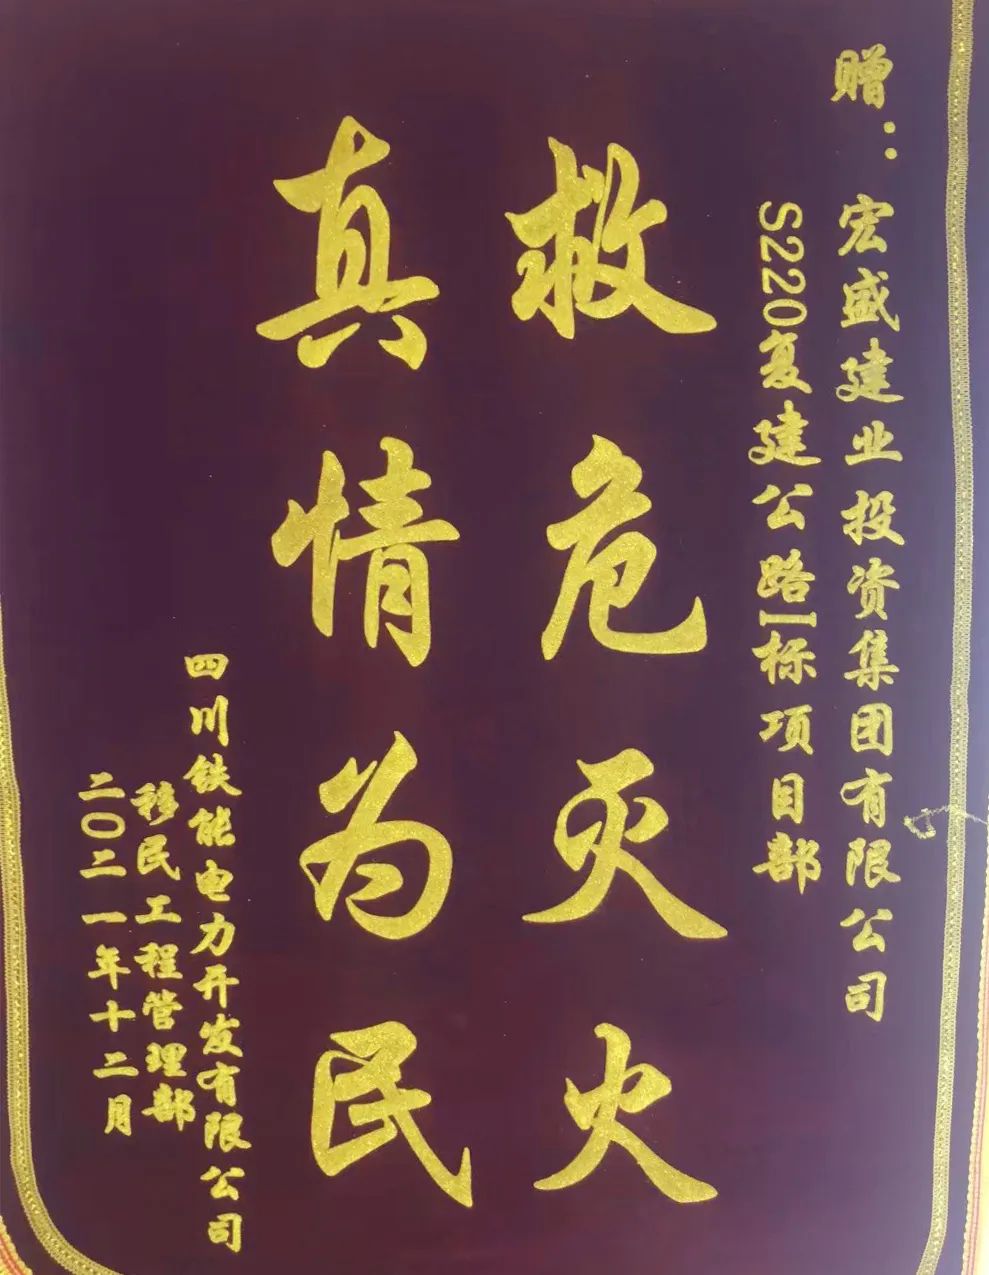 赠：宏盛建业投资集团有限公司
S220复建公路I标项目部
救危灭火
真情为民
四川铁能电力开发有限公司
移民工程管理部
二〇二一年十二月